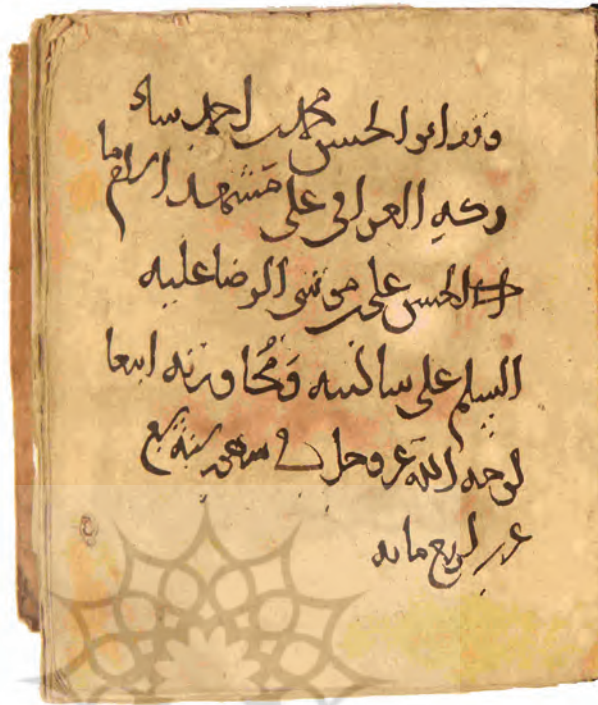 وقف ابو الحسن محمد بن احمد ساه
دكه العراقی علی مشهد الامام
ابو الحسن علی بن موسی الرضا علیه
السلم علی ساکنیه ومجاوریه ابتغا
لوجه الله عز وجل فی شهور سنة سبع
عشر اربع مایه